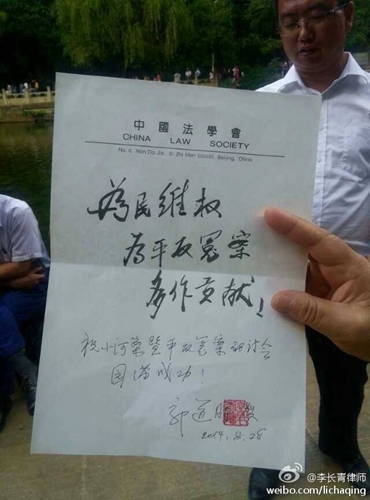 中國法學會
CHINA LAW SOCIETY
为民维权
为平反冤案
多作贡献！
祝小河案暨平反冤案研讨会
圆满成功！
郭道晖
2014.8.28
@李长青律师
weibo.com/lichaqing